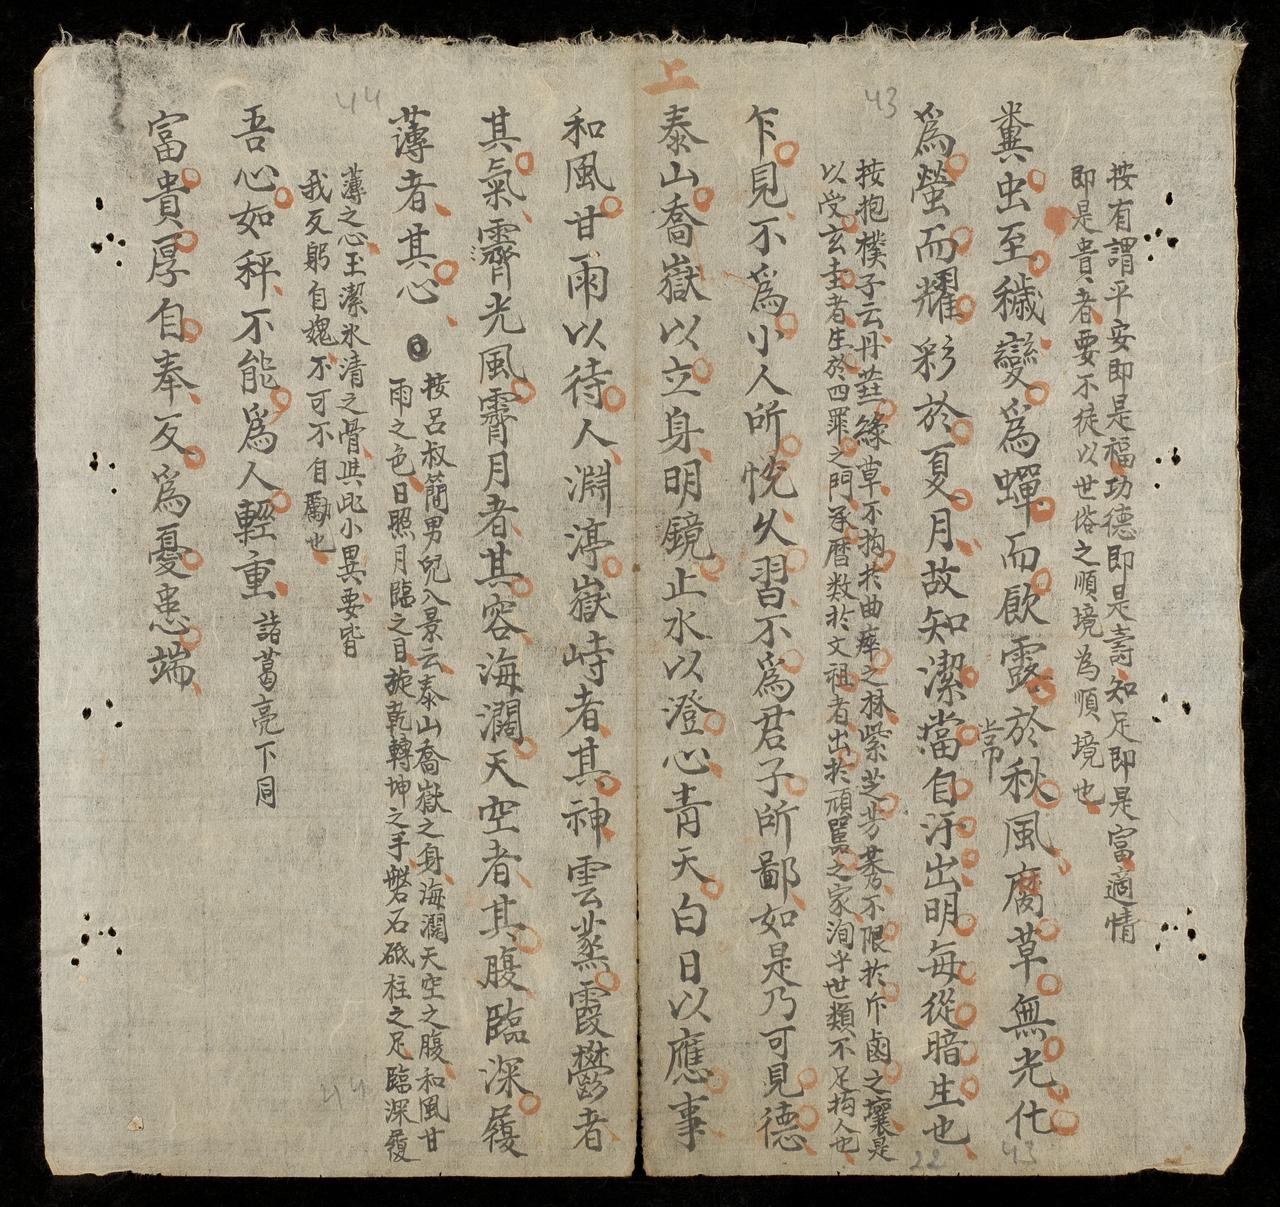 按有謂平安即是福功德即是壽知足即是富適情
即是貴者要不徒以世俗之順境為順境也
糞虫至穢變爲蟬而飮露於秋風腐草無光化
爲螢而耀彩於夏月故知潔當自汙出明每從暗生也
常
按抱樸子云丹蕋綠草不拘於曲瘁之林紫芝芳莠不限於斥鹵之壤是
以受玄圭者生於四罪之門承曆数於文祖者出於頑嚚之家洵乎世類不足拘人也
乍見不爲小人所悅久習不爲君子所鄙如是乃可見德
上
泰山喬嶽以立身明鏡止水以澄心青天白日以應事
和風甘雨以待人淵渟嶽峙者其神雲蒸霞鬱者
其氣霽光風霽月者其容海濶天空者其腹臨深履
薄者其心
按呂叔簡男兒入景云泰山喬嶽之身海濶天空之腹和風甘
雨之色日照月臨之目旋乾轉坤之手磐石砥柱之足臨深履
薄之心玉潔氷清之骨與此小異要皆
我反躬自愧不可不自勵也
吾心如秤不能爲人輕重諸葛亮下同
富貴厚自奉反爲憂患端
43
44
22
43
44